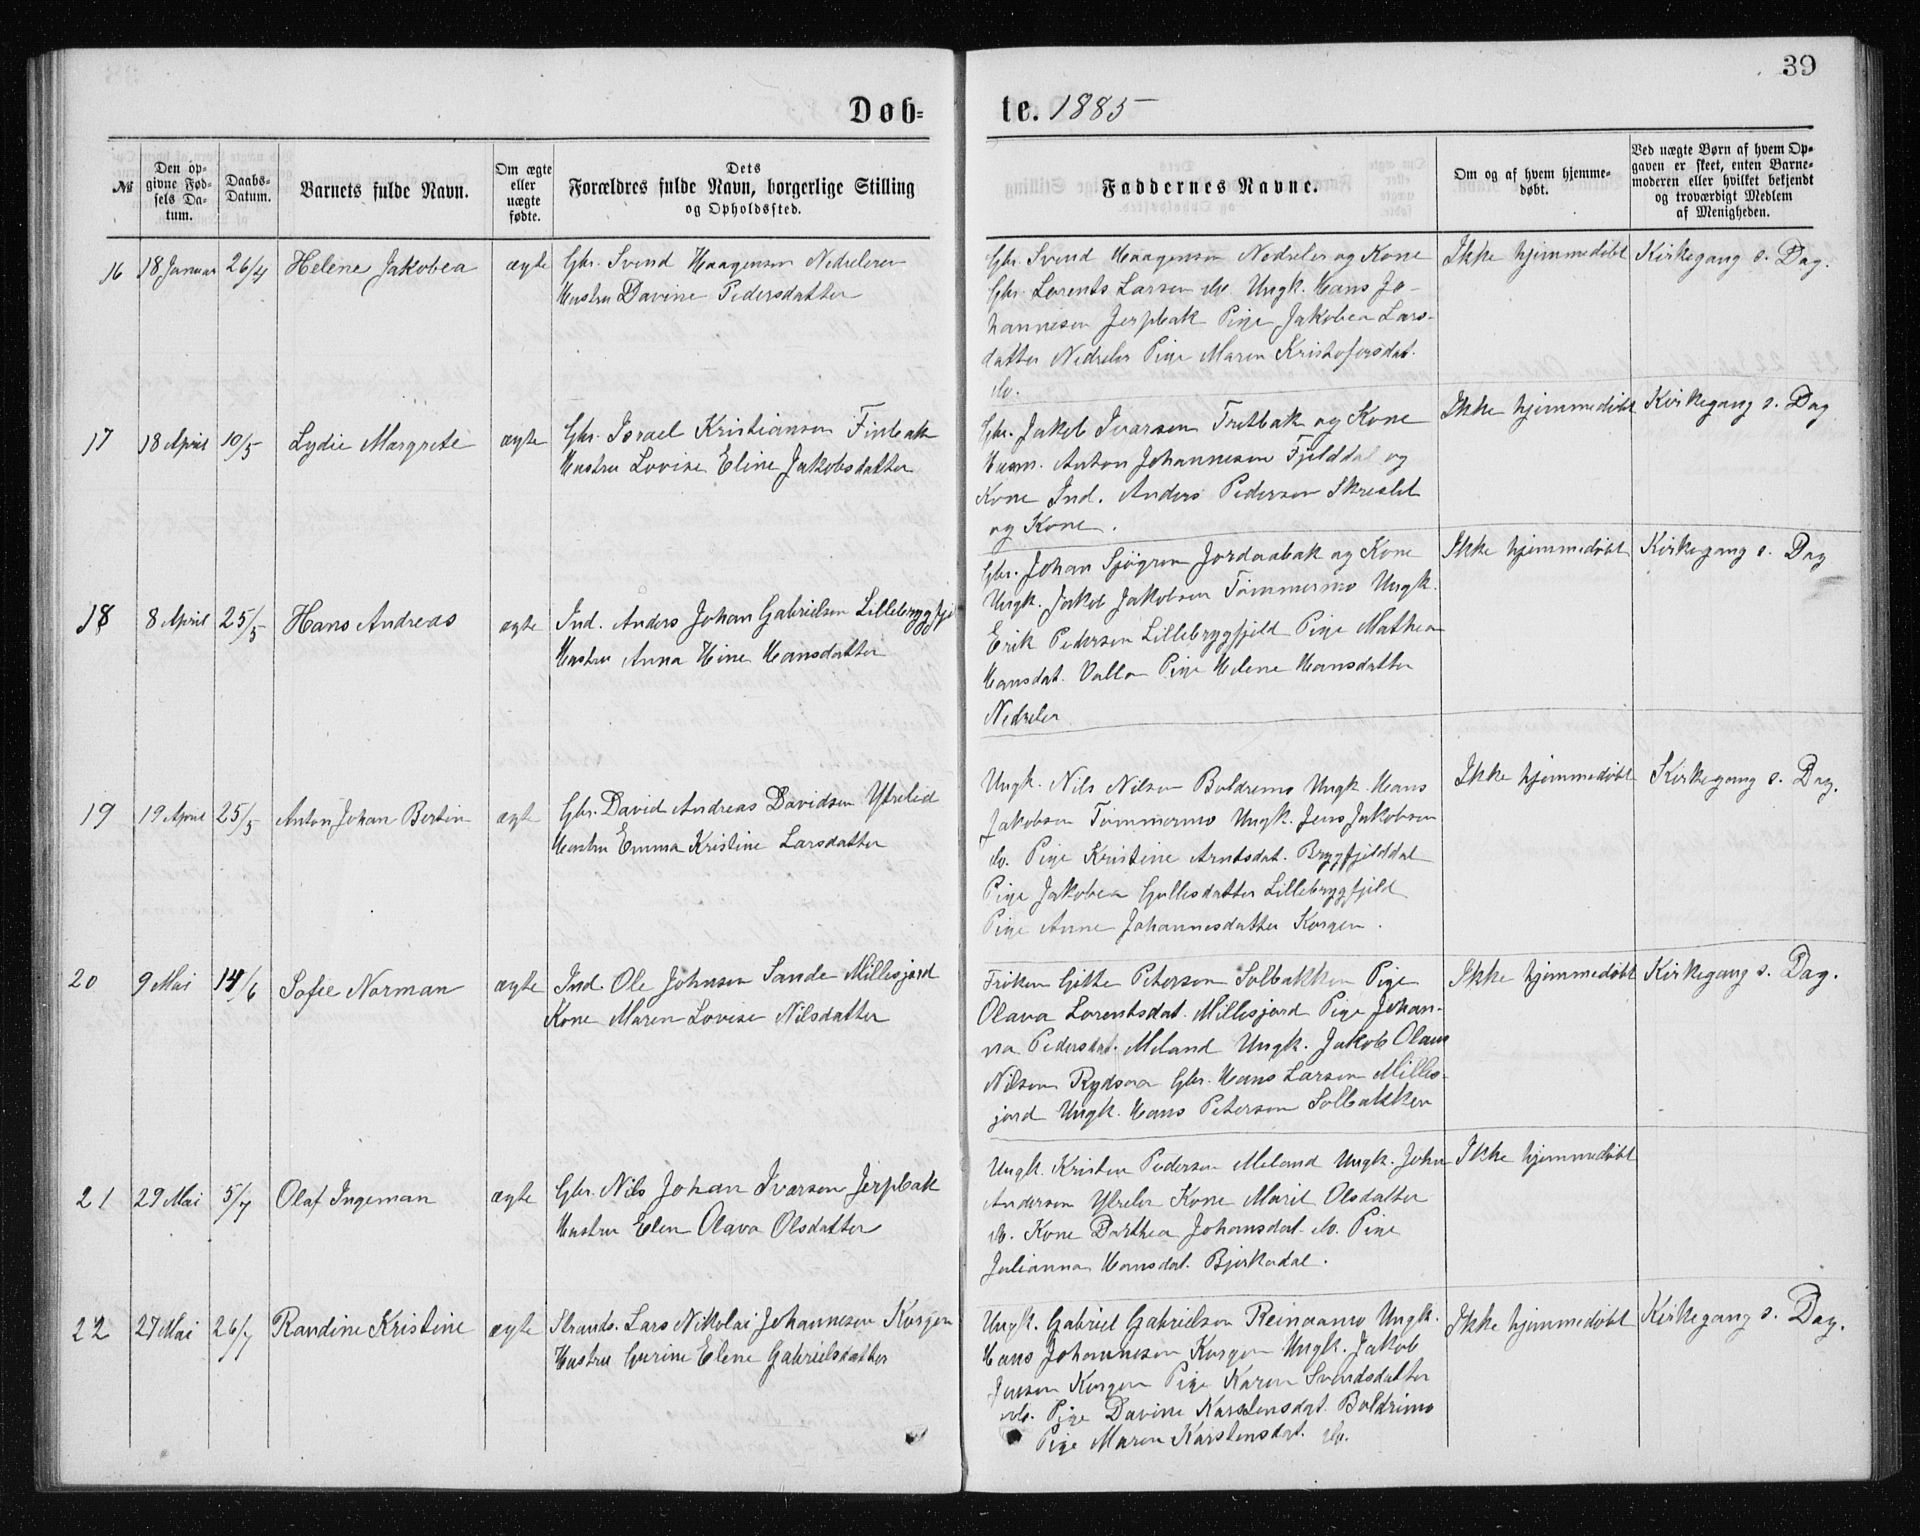 39
Døb-
te. 1885
№
Den op-
givne Fød-
sels Da-
tum.
Daabs-
Datum.
Barnets fulde Navn.
Om ægte
eller
uægte
fødte.
Dets
Forældres fulde Navn, borgerlige Stilling
og Opholdssted.
Faddernes Navne.
Om og af hvem hjemme-
døbt.
Ved uægte Børn af hvem Op-
gaven er skeet, enten Barne-
moderen eller hvilket bekjendt
og troværdigt Medlem
af Menigheden.
16 18 Januar 26/4 Helene Jakobea ægte Gbr. Svend Haagensen Nedreleren
Hustru Davine Pedersdatter
Gbr. Svend Haagensen Nedreler og Kone
Gbr. Lorents Larsen do Ungk. Hans Jo-
hannesen Jerpbak Pige Jakobea Lars-
datter Nedreler Pige Maren Kristofersdat.
do.
Ikke hjemmedøbt
Kirkegang s. Dag.
17 18 April 10/5 Lydie Margrete ægte Gbr. Israel Kristiansen Finbak
Hustru Lovise Eline Jakobsdatter
Gbr. Jakob Ivarsen Tretbak og Kone
Husm. Anton Johannesen Fjelddal og
Kone Ind. Anders Pedersen Skreslet
og Kone.
Ikke hjemmedøbt
Kirkegang s. Dag
18 8 April 25/5 Hans Andreas ægte Ind. Anders Johan Gabrielsen Lillebrygfje
Hustru Anna Hine Hansdatter
Gbr. Johan Sjøgren Jordaabak og Kone
Ungk. Jakob Jakobsen Tømmermo Ungk.
Erik Pedersen Lillebrygfjeld Pige Mathea
Hansdat. Valla Pige Helene Hansdatter
Nedreler
Ikke hjemmedøbt
Kirkegang s. Dag
19 19 April 25/5 Anton Johan Bertin ægte Gbr. David Andreas Davidsen Ytrelid
Hustru Emma Kristine Larsdatter
Ungk. Nils Nilsen Boldremo Ungk. Hans
Jakobsen Tømmermo Ungk. Jens Jakobsen
do. Pige Kristine Arntsdat. Brygfjelddal
Pige Jakobea Gullesdatter Lillebrygfjeld
Pige Anne Johannesdatter Korgen.
Ikke hjemmedøbt
Kirkegang s. Dag.
20 9 Mai 14/6 Sofie Norman ægte Ind. Ole Johnsen Sande Millesjord
Kone Maren Lovise Nilsdatter
Frøken Gitte Petersen Solbakken Pige
Olava Lorentsdat. Millesjord Pige Johan-
na Pedersdat. Meland Ungk. Jakob Olaus
Nilsen Rydsaa Gbr. Hans Larsen Milles-
jord Ungk. Hans Petersen Solbakken
Ikke hjemmedøbt
Kirkegang s. Dag.
21 29 Mai 5/7 Olaf Ingeman ægte Gbr. Nils Johan Ivarsen Jerpbak
Hustru Elen Olava Olsdatter
Ungk. Kristen Pedersen Meland Ungk. John
Andersen Ytreler Kone Marit Olsdatter
do. Kone Dorthea Johansdat. do. Pige
Julianna Hansdat. Bjerkadal.
Ikke hjemmedøbt
22 27 Mai 26/7 Randine Kristine ægte Strands. Lars Nikolai Johannesen Korgen
Hustru Gurine Elene Gabrielsdatter
Ungk. Gabriel Gabrielsen Reinaamo Ungk.
Hans Johannesen Korgen Ungk. Jakob
Jensen Korgen Pige Karen Svendsdatter
do. Pige Davine Karstensdat. Boldremo
Pige Maren Karstensdat. do.
Ikke hjemmedøbt
Kirkegang s. Dag.